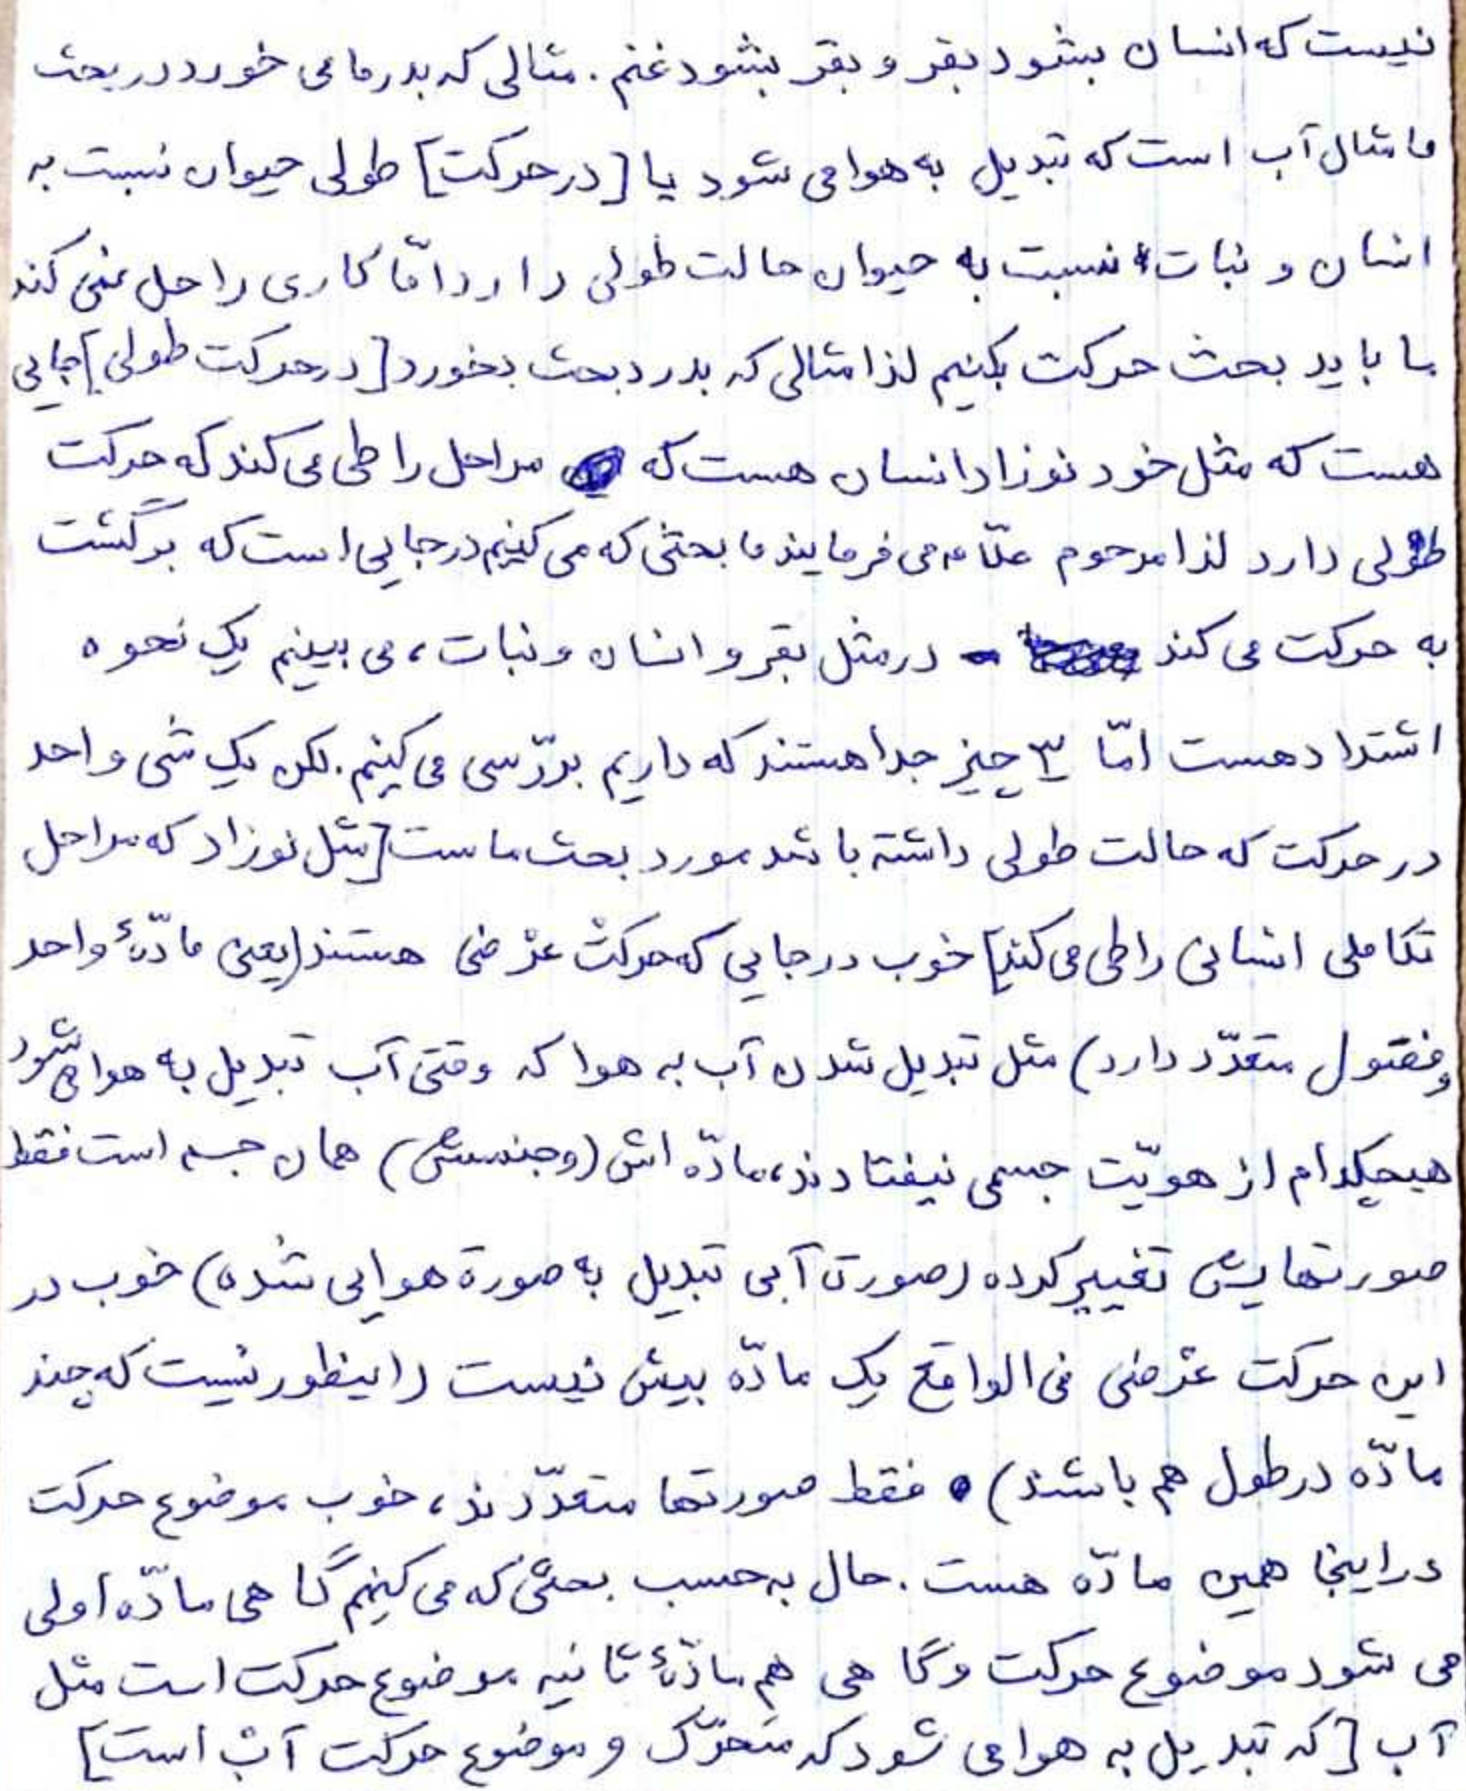 نیست که انسان بشود بقر و بقر بشود غنم. مثالی که بدرد ما می خورد در بحث
ما مثال آب است که تبدیل به هوا می شود یا [در حرکت] طولی حیوان نسبت به
انسان و نبات نسبت به حیوان حالت طولی دارد امّا کاری را حل نمی کند
ما باید بحث حرکت بکنیم لذا مثالی که بدرد بحث بخورد [در حرکت طولی] جایی
هست که مثل خود نوزاد انسان هست که مراحل را طی می کند که حرکت
طولی دارد لذا مرحوم علّامه می فرمایند ما بحثی که می کنیم در جایی است که برگشت
به حرکت می کند در مثل بقر و انسان و نبات، می بینیم یک نحوه
اشتداد هست امّا ۳ چیز جدا هستند که داریم بررّسی می کنیم. لکن یک شی واحد
در حرکت که حالت طولی داشته باشد مورد بحث ماست [مثل نوزاد که مراحل
تکاملی انسانی را طی می کند] خوب در جایی که حرکتْ عَرْضی هستند (یعنی مادّهٔ واحد
و فصول متعدّد دارد) مثل تبدیل شدن آب به هوا که وقتی آب تبدیل به هوا می شود
هیچکدام از هویّت جسمی نیفتادند، مادّه اش (و جنسش) همان جسم است فقط
صورتهایش تغییر کرده (صورت آبی تبدیل به صورة هوایی شده) خوب در
این حرکت عَرْضی فی الواقع یک مادّه بیش نیست (اینطور نیست که چند
مادّه در طول هم باشند) فقط صورتها متعدّدند، خوب موضوع حرکت
در اینجا همین مادّه هست. حال به حسب بحثی که می کنیم گاهی مادّه اولی
می شود موضوع حرکت و گاهی هم مادّهٔ ثانیه موضوع حرکت است مثل
آب [که تبدیل به هوا می شود که متحرّک و موضوع حرکت آبْ است]